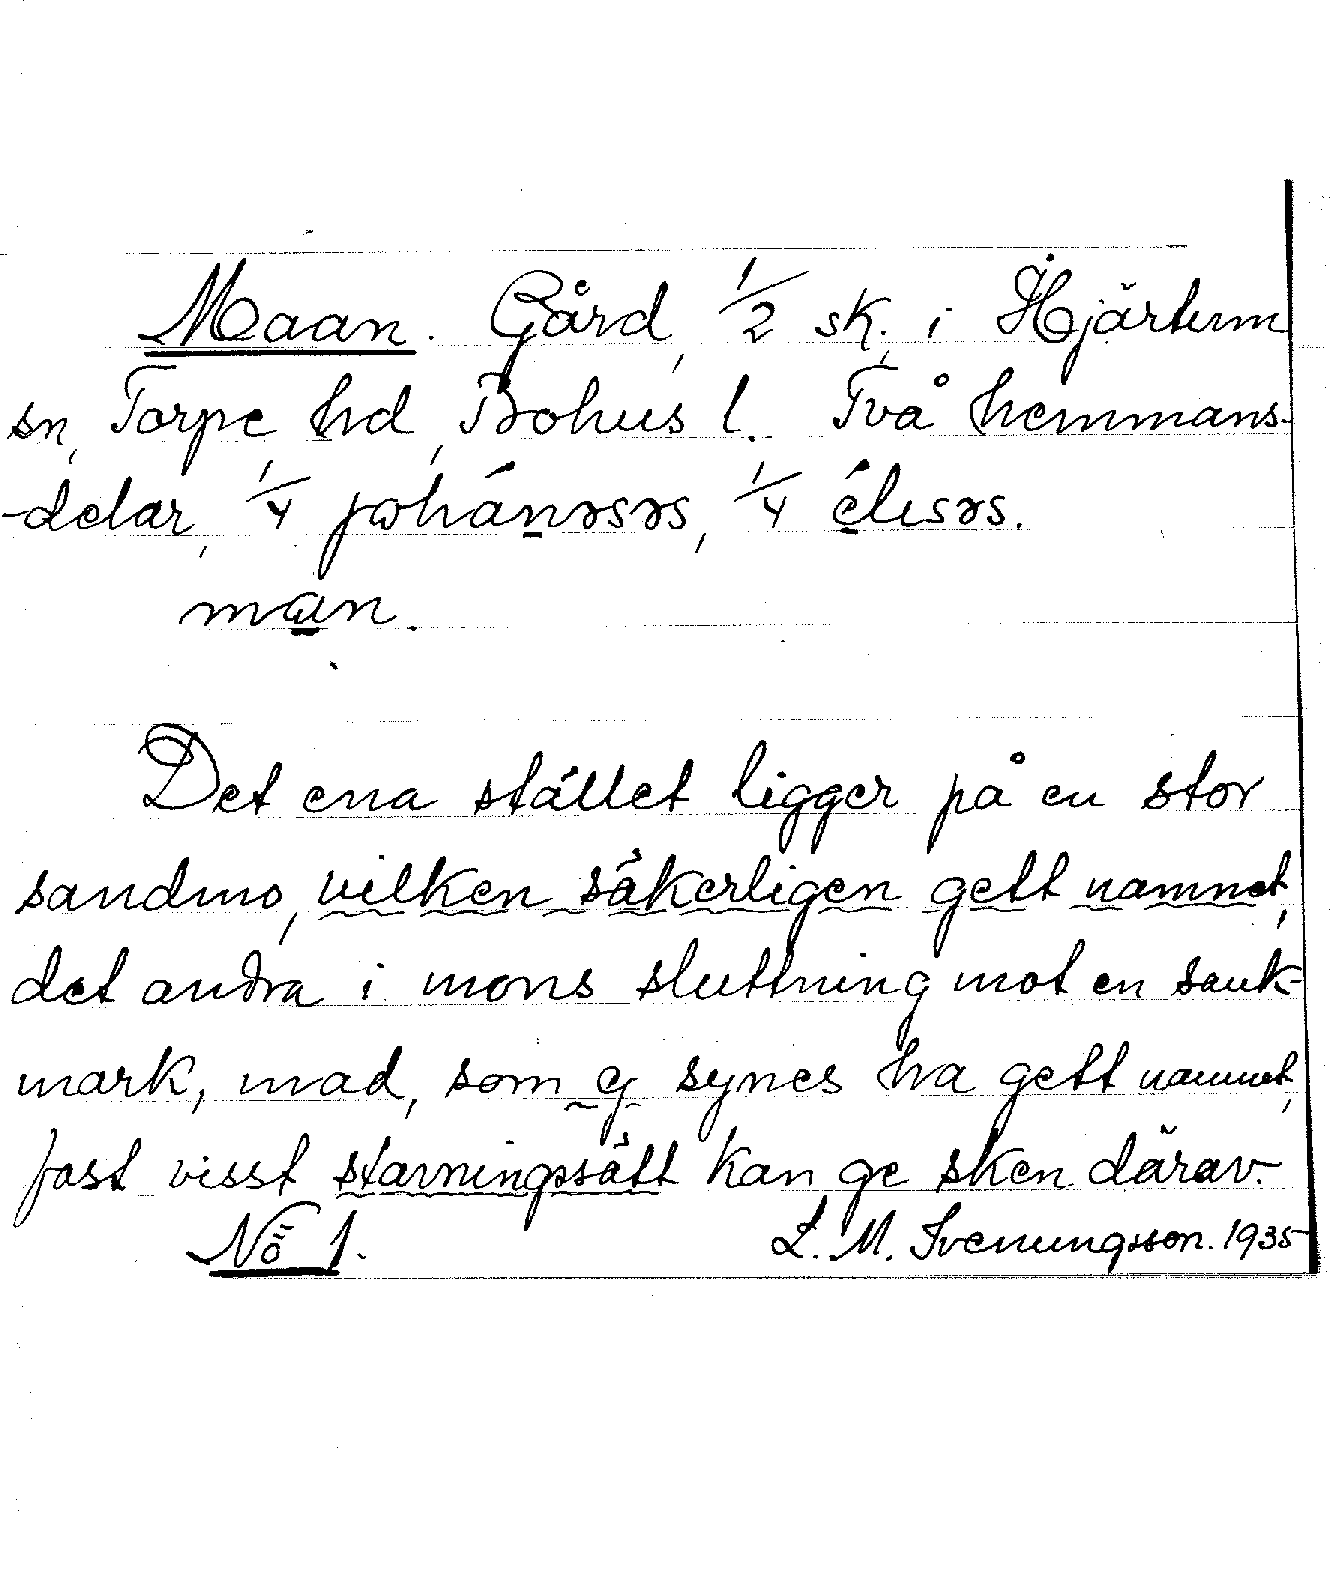 Maan. Gård, 1/2 sk. i Hjärtum
sn, Torpe hd, Bohus l. Två hemmans-
-delar, 1/4 johánəsəs, 1/4 élısəs.
man.
Det ena stället ligger på en stor
sandmo, vilken säkerligen gett namnet,
det andra i mons sluttning mot en sank-
mark, mad, som ej synes ha gett namnet,
fast visst stavningssätt kan ge sken därav.
No 1. L. M. Svenungsson. 1935